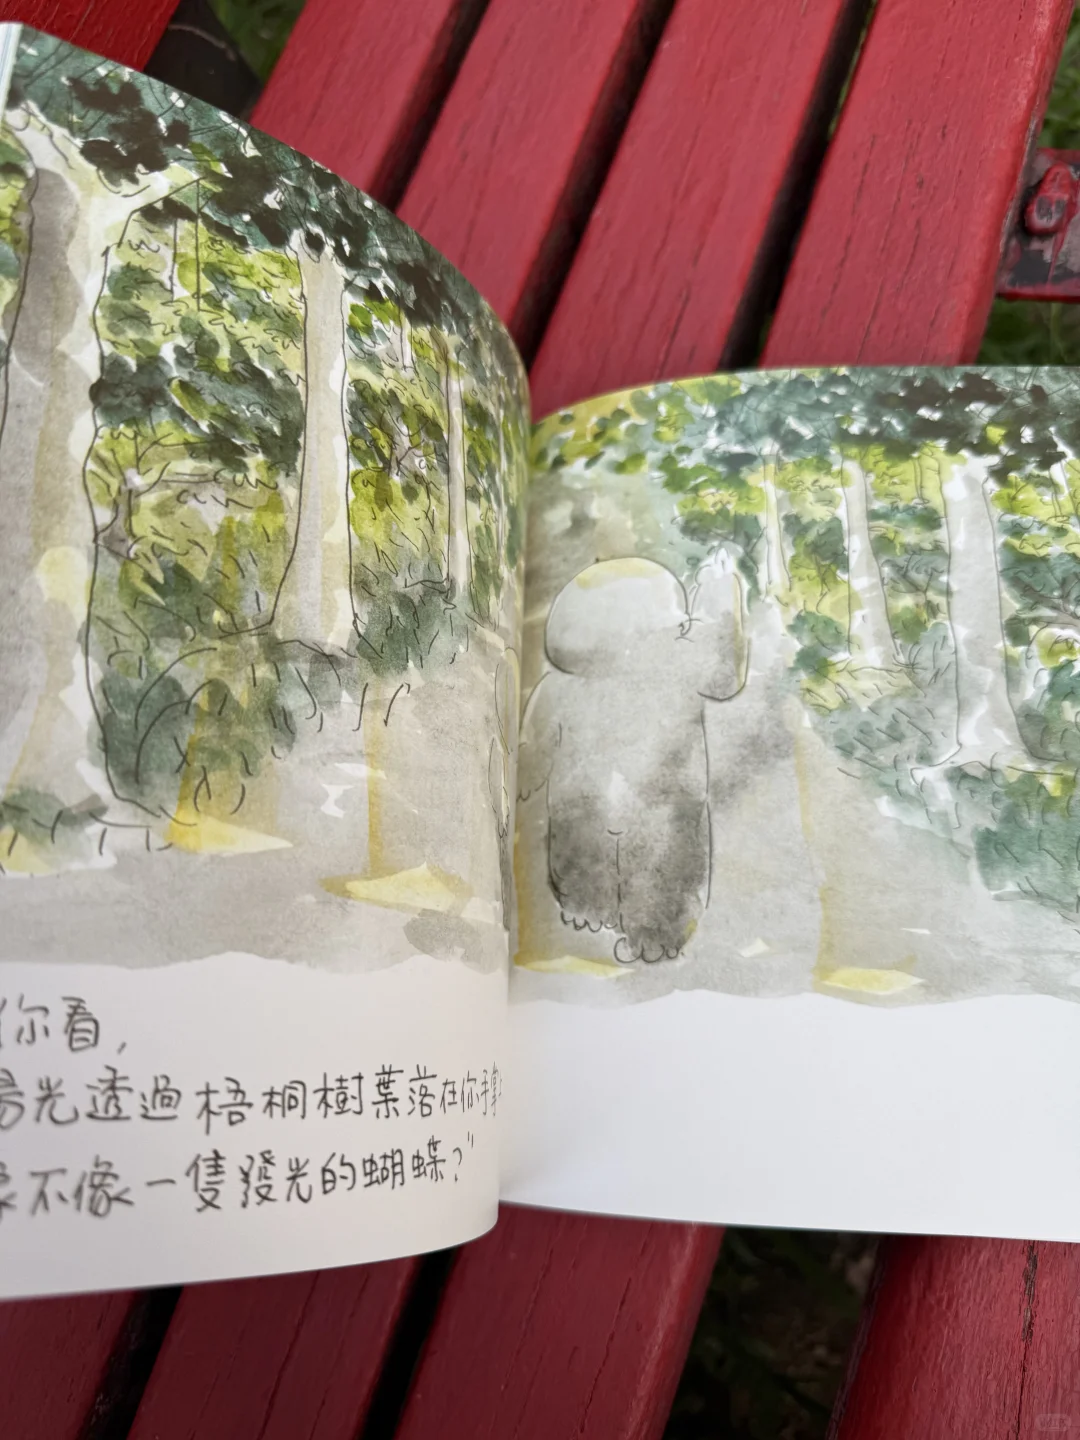 你看,
陽光透過梧桐樹葉落在你手掌
像不像一隻發光的蝴蝶?"